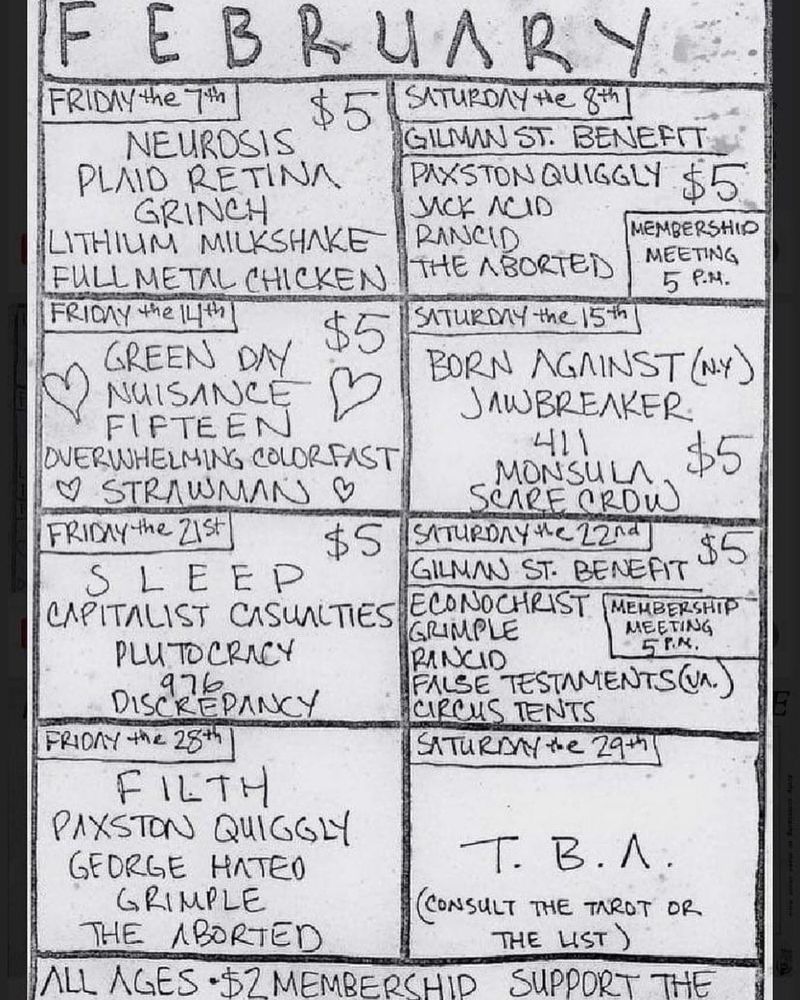 FEBRUARY
FRIDAY the 7th
$5
NEUROSIS
PLAID RETINA
GRINCH
LITHIUM MILKSHAKE
FULL METAL CHICKEN
SATURDAY the 8th
GILMAN ST. BENEFIT
PAXSTON QUIGGLY $5
JACK ACID
RANCID
THE ABORTED
MEMBERSHIP
MEETING
5 P.M.
FRIDAY the 14th
$5
GREEN DAY
NUISANCE
FIFTEEN
OVERWHELMING COLORFAST
STRAWMAN
SATURDAY the 15th
BORN AGAINST (N.Y)
JAWBREAKER
411
MONSULA
SCARE CROW
$5
FRIDAY the 21st
$5
SLEEP
CAPITALIST CASUALTIES
PLUTOCRACY
976
DISCREPANCY
SATURDAY the 22nd
$5
GILMAN ST. BENEFIT
ECONOCHRIST
GRIMPLE
RANCID
FALSE TESTAMENTS (VA.)
CIRCUS TENTS
MEMBERSHIP
MEETING
5 P.M.
FRIDAY the 28th
FILTH
PAXSTON QUIGGLY
GEORGE HATED
GRIMPLE
THE ABORTED
SATURDAY the 29th
T. B. A.
(CONSULT THE TAROT OR
THE LIST)
ALL AGES • $2 MEMBERSHIP SUPPORT THE